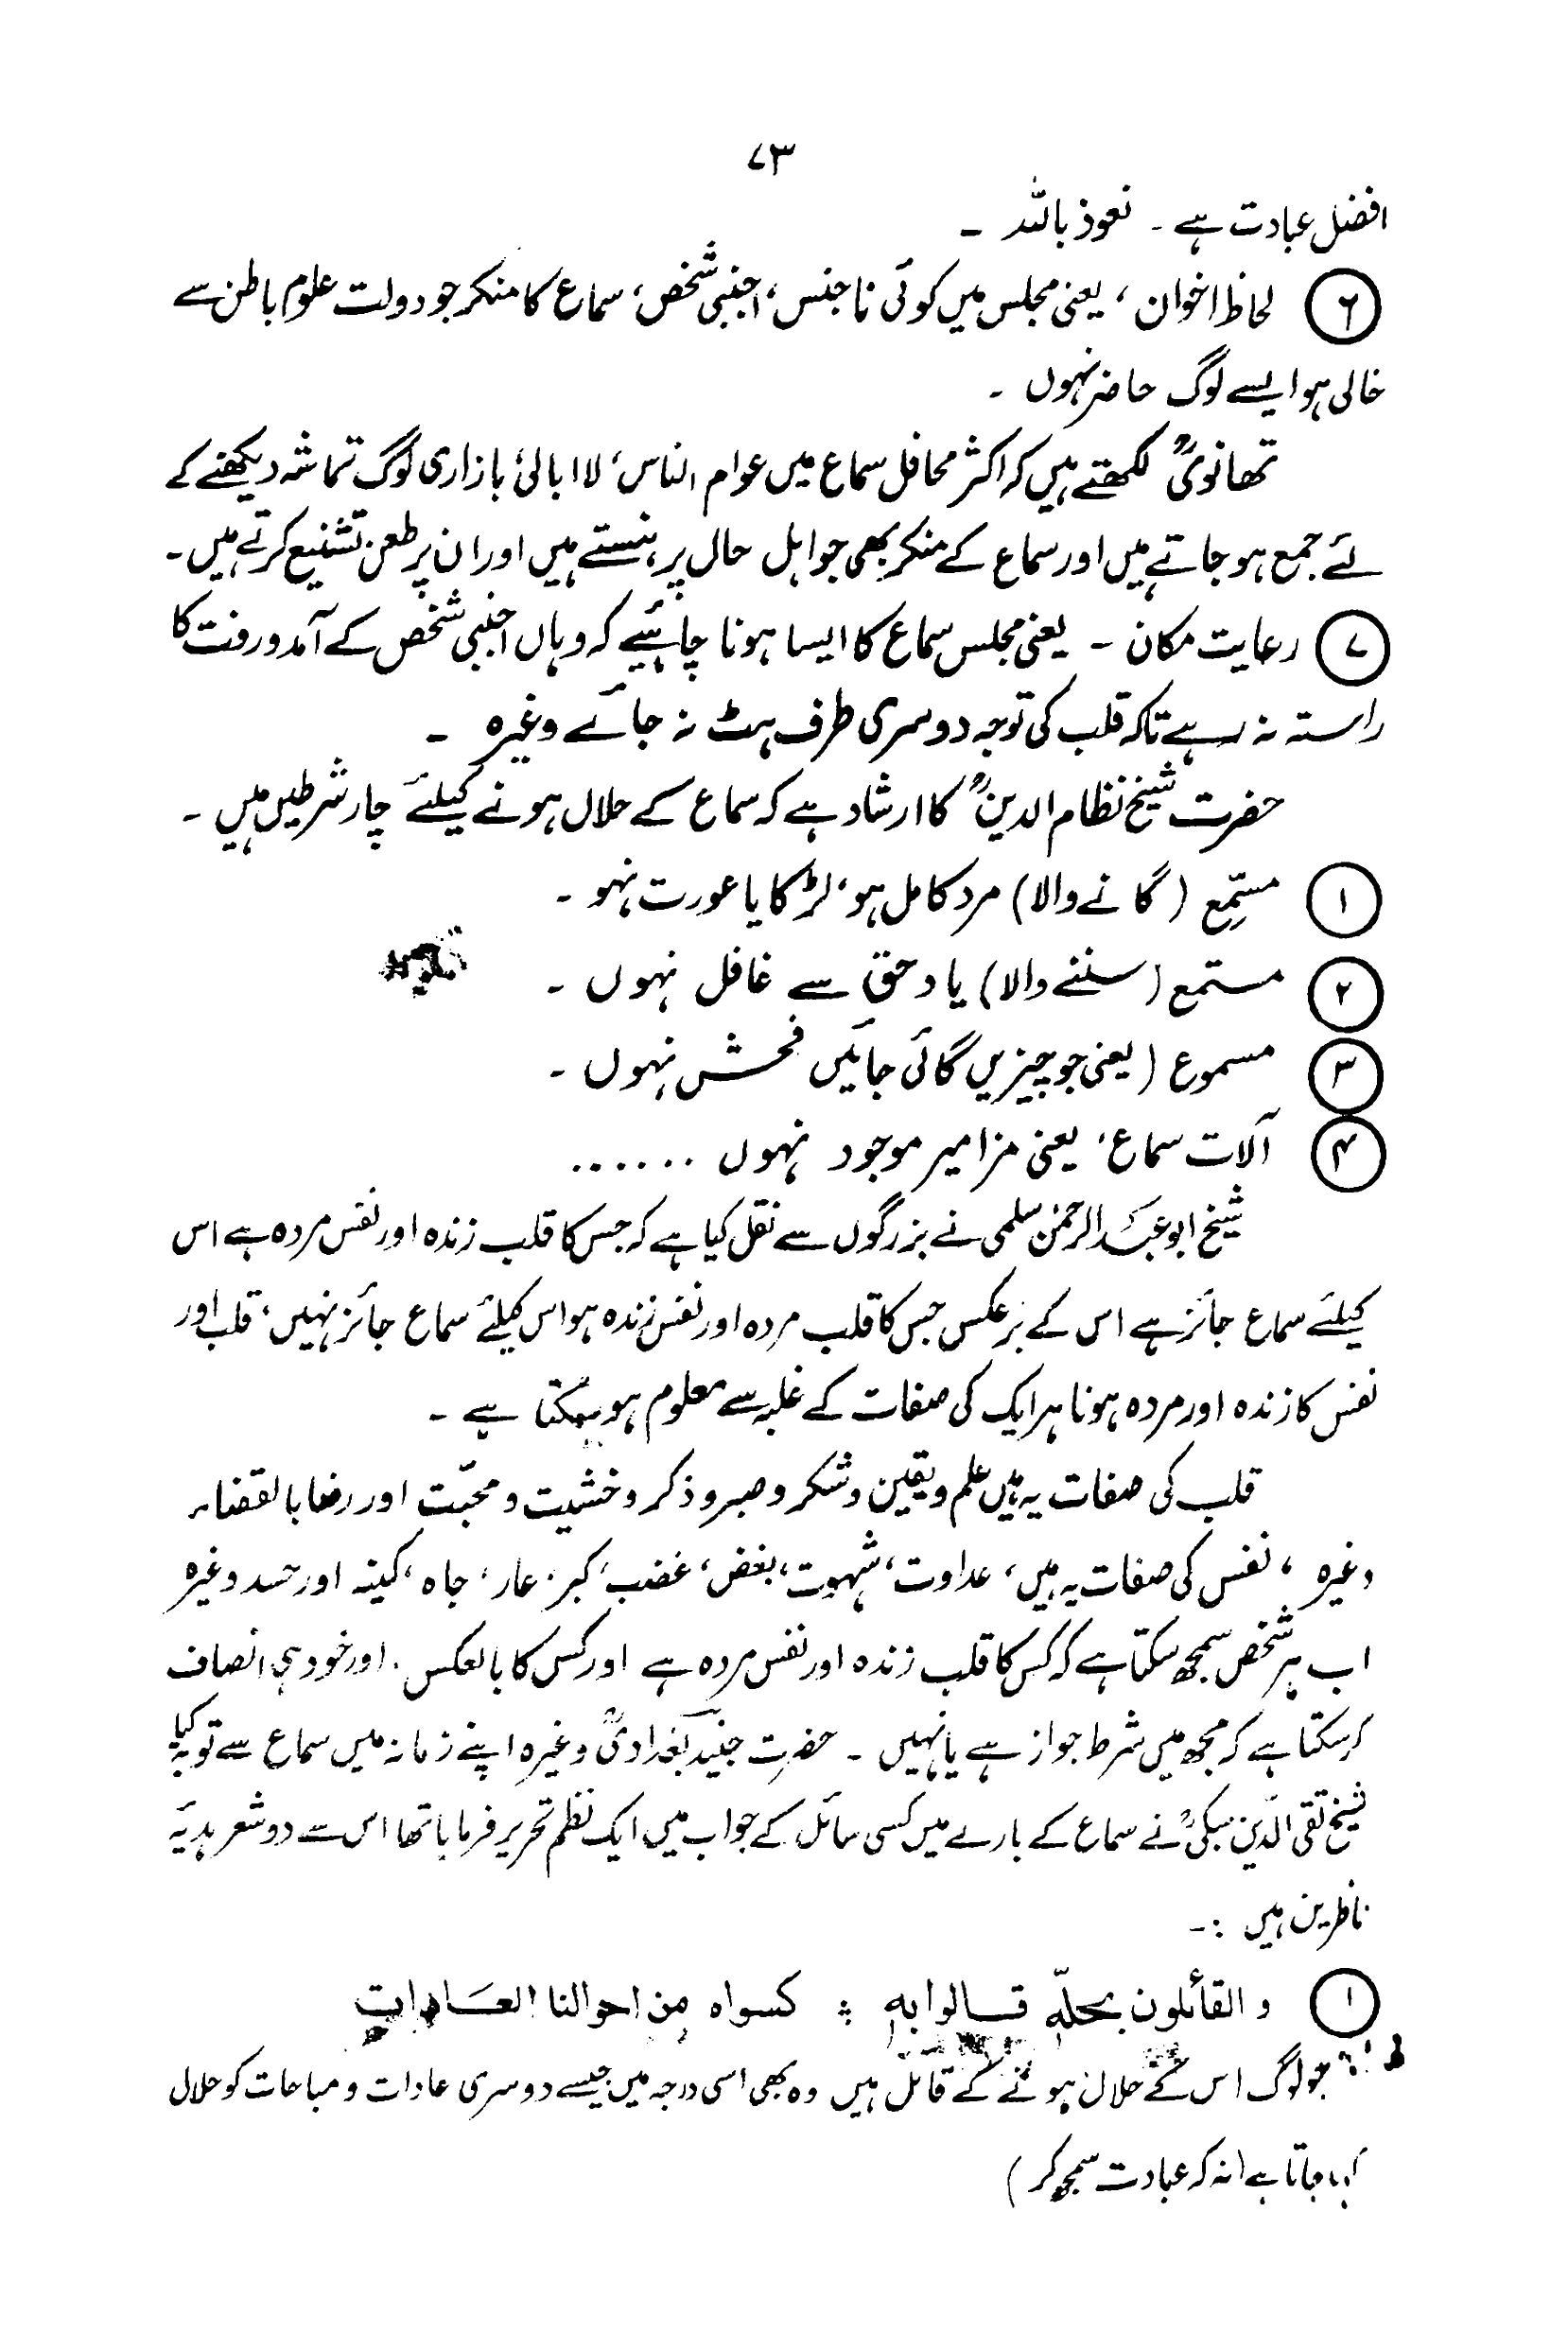 ۷۳
افضل عبادت ہے ۔ نعوذ باللہ ۔
۶ لحاظ اخوان ، یعنی مجلس میں کوئی نا جنس ، اجنبی شخص ، سماع کا منکر جو دولت علوم باطن سے
خالی ہو ایسے لوگ حاضر نہوں ۔
تھانویؒ لکھتے ہیں کہ اکثر محافل سماع میں عوام الناس ، لا ابالیٔ بازاری لوگ تماشہ دیکھنے کے
لئے جمع ہو جاتے ہیں اور سماع کے منکر بھی جو اہل حال پر ہنستے ہیں اور ان پر طعن تشنیع کرتے ہیں ۔
۷ رعایت مکان ۔ یعنی مجلس سماع کا ایسا ہونا چاہئیے کہ وہاں اجنبی شخص کے آمدورفت کا
راستہ نہ رہے تاکہ قلب کی توجہ دوسری طرف ہٹ نہ جائے وغیرہ ۔
حضرت شیخ نظام الدینؒ کا ارشاد ہے کہ سماع کے حلال ہونے کیلئے چار شرطیں ہیں ۔
۱ مسّمِع ( گانے والا ) مرد کامل ہو ، لڑکا یا عورت نہو ۔
۲ مستمع ( سننے والا ) یاد حق سے غافل نہوں ۔
۳ مسموع ( یعنی جو چیزیں گائی جائیں فحش نہوں ۔
۴ آلات سماع ، یعنی مزامیر موجود نہوں ......
شیخ ابو عبد الرحمٰن سلمی نے بزرگوں سے نقل کیا ہے کہ جس کا قلب زندہ اور نفس مردہ ہے اس
کیلئے سماع جائز ہے اس کے برعکس جس کا قلب مردہ اور نفس زندہ ہو اس کیلئے سماع جائز نہیں ، قلب اور
نفس کا زندہ اور مردہ ہونا ہر ایک کی صفات کے غلبہ سے معلوم ہو سکتا ہے ۔
قلب کی صفات یہ ہیں علم و یقین و شکر و صبر و ذکر و خشیت و محبّت اور رضا بالقضاء
وغیرہ ، نفس کی صفات یہ ہیں ، عداوت ، شہوت ، بغض ، غضب ، کبر ، عار ، جاہ ، کینہ اور حسد وغیرہ
اب ہر شخص سمجھ سکتا ہے کہ کس کا قلب زندہ اور نفس مردہ ہے اور کس کا بالعکس ۔ اور خود ہی انصاف
کر سکتا ہے کہ مجھ میں شرط جواز ہے یا نہیں ۔ حضرت جنید بغدادیؒ وغیرہ اپنے زمانہ میں سماع سے توبہ کیا
شیخ تقی الدّین سبکیؒ نے سماع کے بارے میں کسی سائل کے جواب میں ایک نظم تحریر فرمایا تھا اس سے دو شعر ہدیٔہ
ناظرین ہیں :۔
۱ و القائلون بحلّہ قالوا بہ ؞ کسواہ من احوالنا العادات
جو لوگ اس کے حلال ہونے کے قائل ہیں وہ بھی اسی درجہ میں جیسے دوسری عادات و مباحات کو حلال
کہا جاتا ہے ( نہ کہ عبادت سمجھ کر )